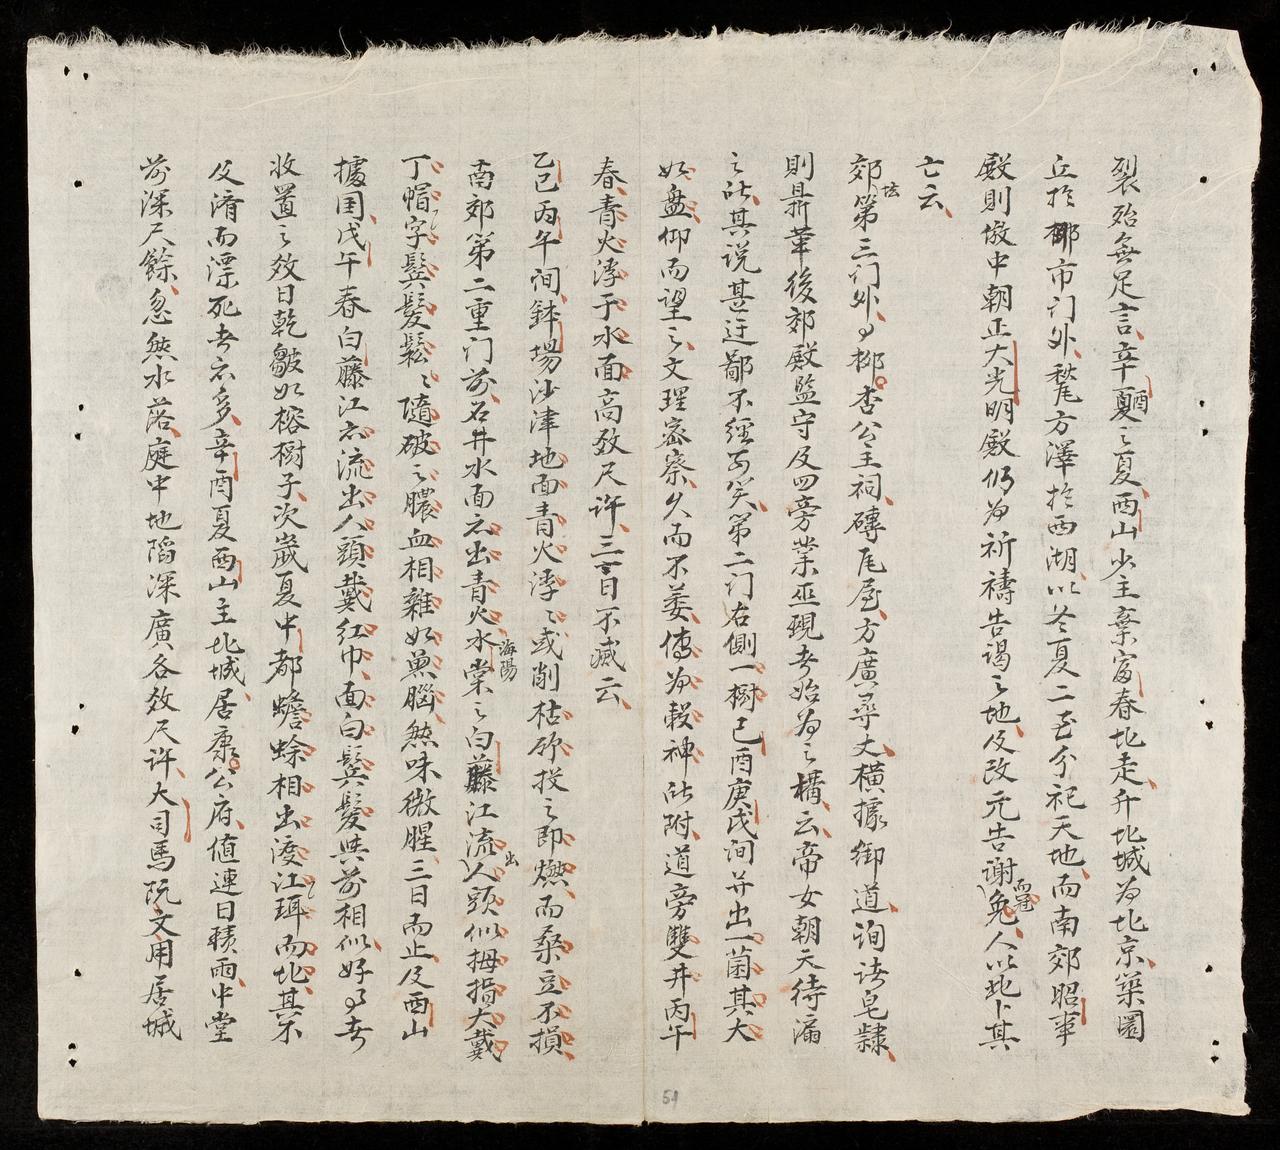 裂殆無足言辛酉夏之夏西山少主棄富春北走升北城為北京築圜
丘於椰市门外甃方澤於西湖以冬夏二至分祀天地而南郊昭事
殿則倣中朝正大光明殿仍為祈禱告謁之地及改元告謝而冠免人以此卜其
亡云
郊坛第三门外有柳杏公主祠磚瓦屋方廣尋丈橫據御道詢諸皂隸
則鼎革後郊殿監守及四旁業巫覡者始為之構云帝女朝天待漏
之所其说甚迂鄙不經可笑第二门右側一樹己酉庚戌间并出一菌其大
如盘仰而望之文理密察久而不萎傳為穀神所附道旁雙井丙午
春青火浮于水面高数尺许三三日不滅云
乙巳丙午间鉢場沙津地面青火浮々或削枯竹投之即爇而桑豆不損
南郊第二重门前石井水面亦出青火水棠海陽之白藤江流出人頭似拇指大戴
丁帽字鬓髮鬆々隨破之膿血相雜如魚腦然味微腥三日而止及西山
據国戊午春白藤江亦流出人頭戴红巾面白鬓髮與前相似好事者
收置之数日乾皺如榕樹子次歲夏中都蟾蜍相出渡江珥而北其不
及濟而漂死者亦多辛酉夏西山主北城居康公府值連日積雨中堂
前深尺餘忽然水落庭中地陷深廣各数尺许大司馬阮文用居城